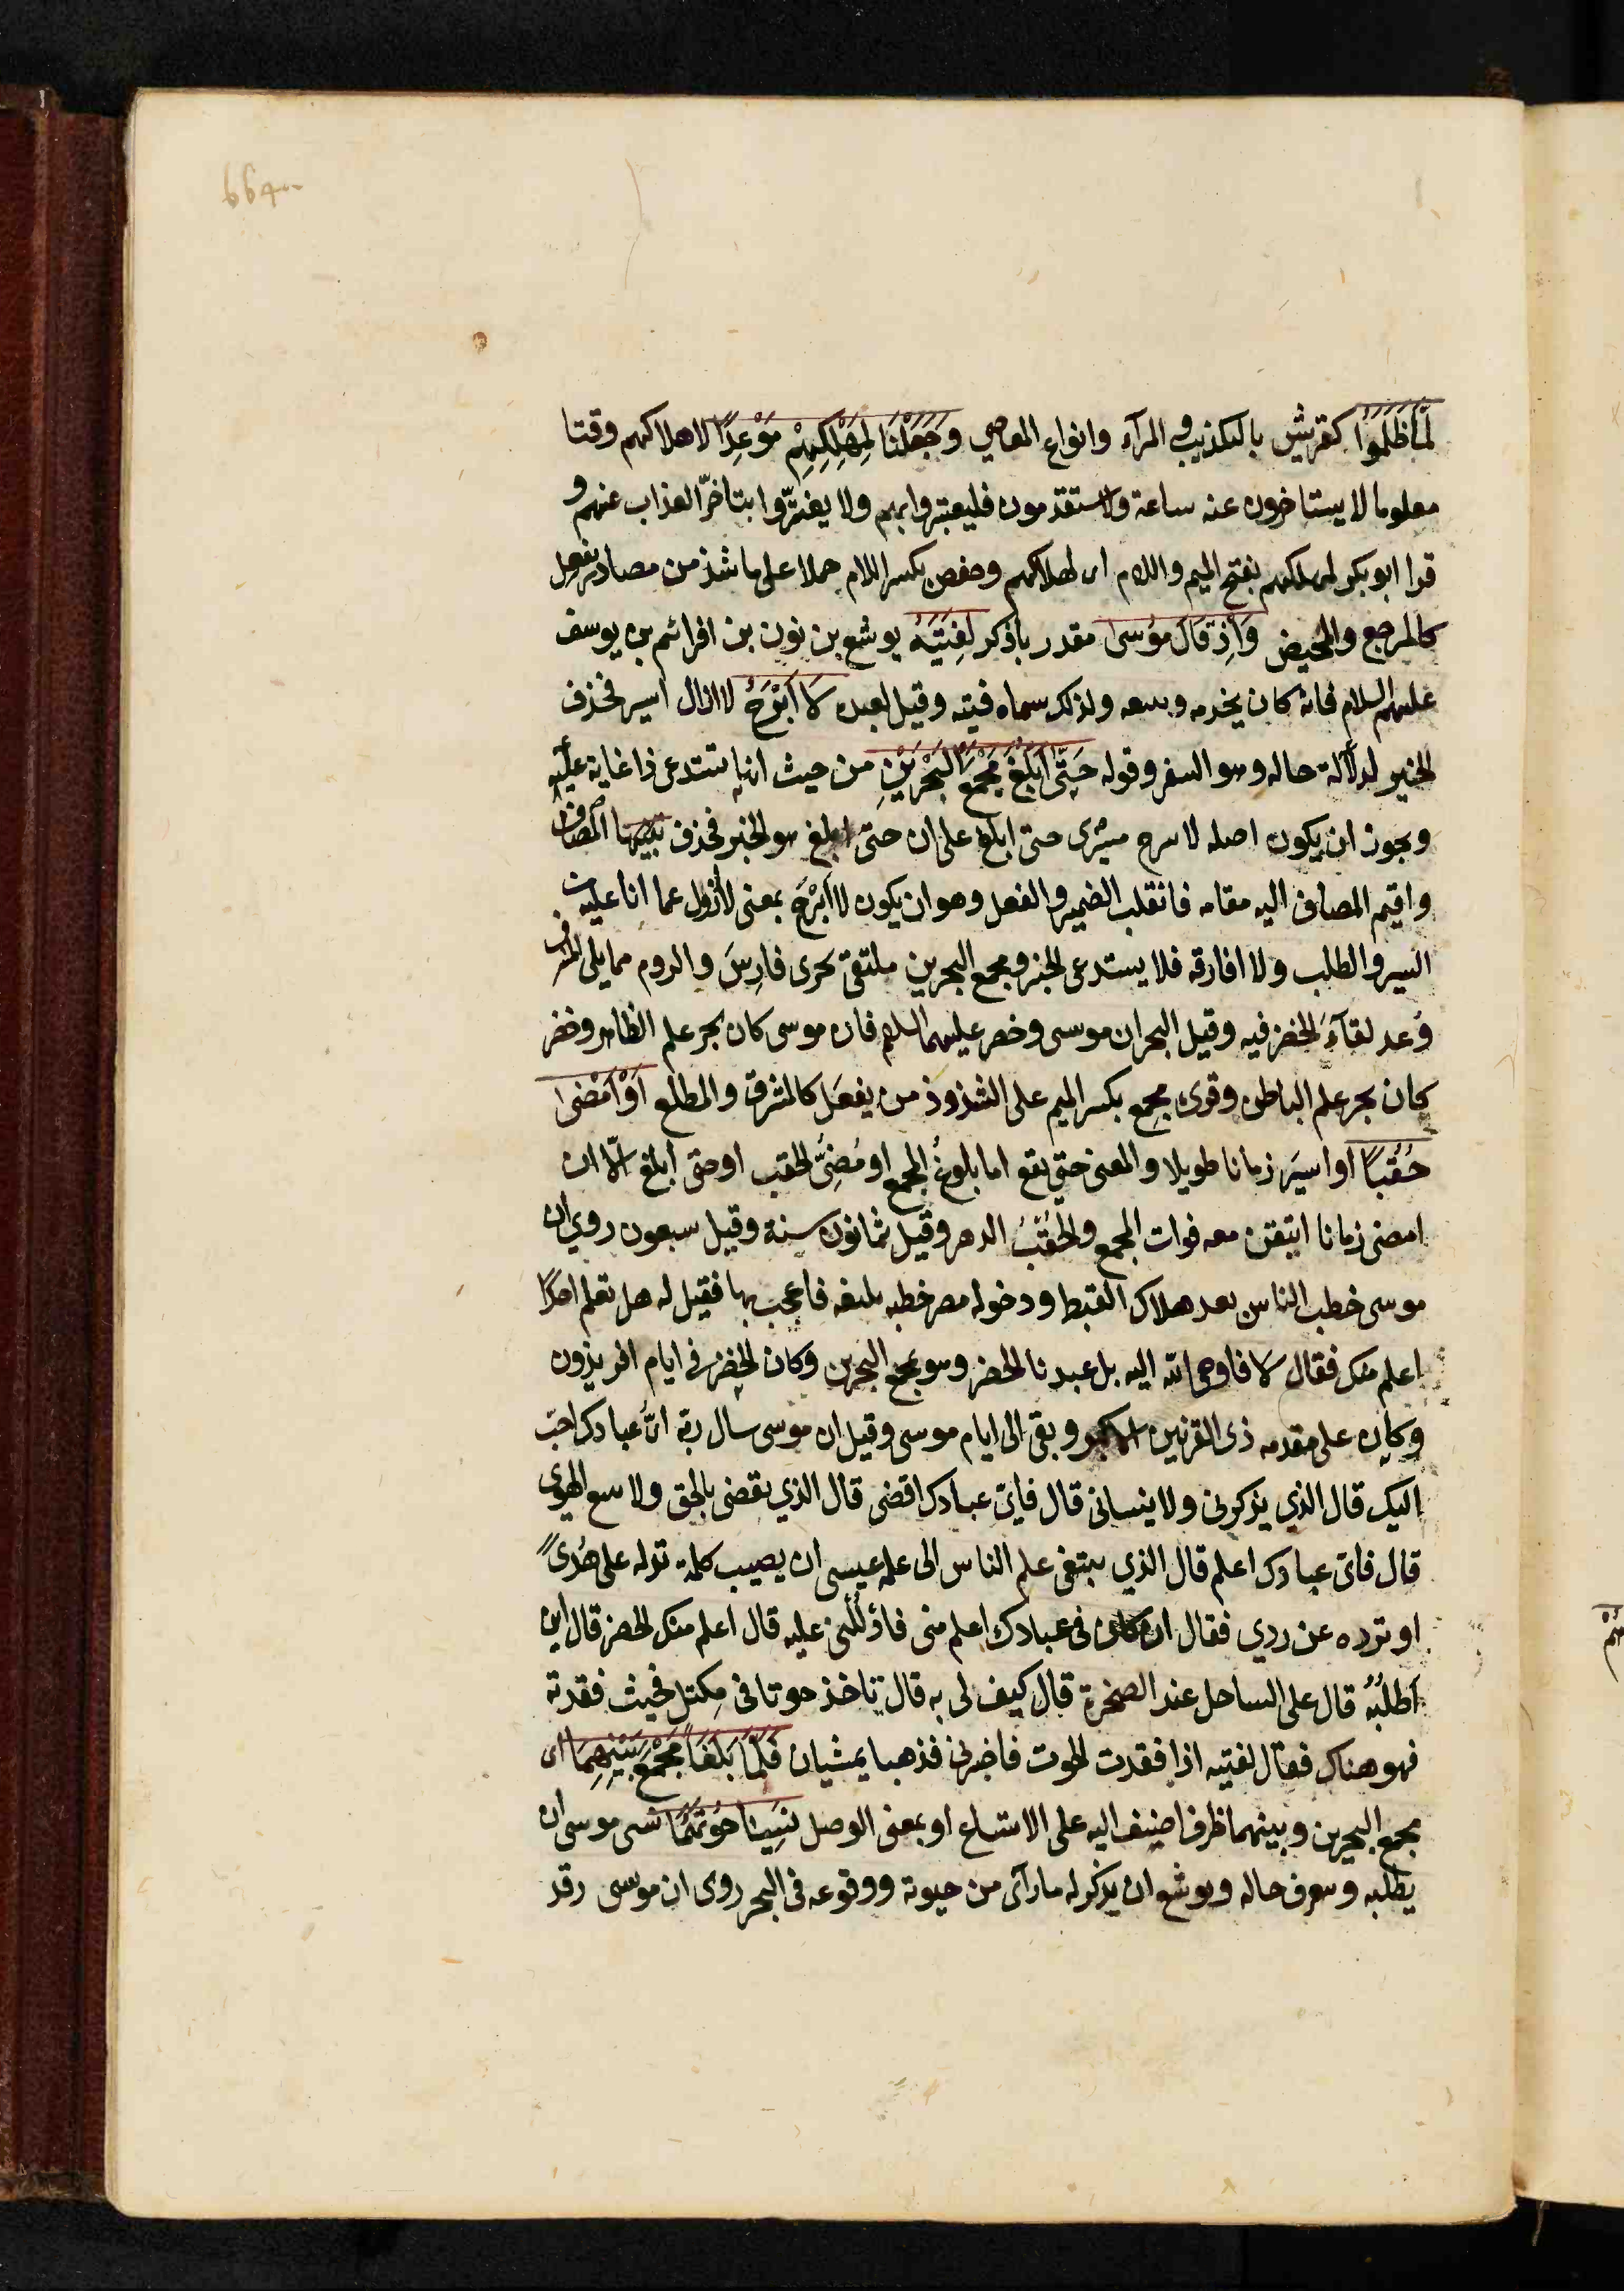 664
لَمَّا ظَلَمُوا كقريش بالتكذيب والمرآء وانواع المعاصي وَجَعَلْنَا لِمَهْلِكِهِمْ مَوْعِدًا لاهلاكهم وقتا
معلوما لا يستاخرون عنه ساعة ولا ستقدمون فليعتبروا بهم ولا يغترّوا بتاخّر العذاب عنهم و
قرا ابو بكر لمهلكهم بفتح الميم واللام اى لهلاكهم وحفص بكسر اللام حملا على ما شذ من مصادر يفعل
كالمرجع والمحيض وَاِذْ قَالَ مُوسى مقدر باذكر لِفَتَيهُ يوشع بن نون بن افرائم بن يوسف
عليهم السلام فانه كان يخدمه ويتبعه ولذلك سماه فتيه وقيل لعبده لَا اَبْرَحُ لا ازال اسير فحذف
الخبر لدلالة حاله وهو السفر وقوله حَتّى اَبْلُغَ مَجْمَعَ الْبَحْرَيْنِ من حيث انها تستدعى ذا غاية عليه
ويجوز ان يكون اصله لا يبرح مسيرى حتى ابلغ على ان حتى ابلغ هو الخبر فحذف المضاف
واقيم المضاف اليه مقامه فانقلب الضمير والفعل وهو ان يكون لا اَبْرَحُ بمعنى لا ازول عما انا عليه من
السير والطلب ولا افارقه فلا يستدعى الخبر ومجمع البحرين ملتقى بحرى فارِسَ والروم مما يلى المشرق
وُعد لقآءَ الخضر فيه وقيل البحران موسى وخضر عليهما السلام فان موسى كان بحر علم الظاهر وخضر
كان بحر علم الباطن وقرى مجمع بكسر الميم على الشذوذ من يفعَل كالمشرق والمطلع اَوْ اَمْضِىَ
حُقُبًا او اسيَر زمانا طويلا والمعنى حتى يقع اما بلوغُ المجمع او مُضِىُّ الحقب او حتى ابلغ الّا ان
امضى زمانا اتيقن معه فوات المجمع والحُقُبُ الدهر وقيل ثمانون سنة وقيل سبعون روي ان
موسى خطب الناس بعد هلاك القبط ودخوله مصر خطبه بليغه فاعجب بها فقيل له هل تعلم احدًا
اعلم منك فقال لَا فاوحى الله اليه بل عبدنا الخضر وهو بمجمع البحرين وكان الخضر فى ايام افريذون
وكان على مقدمه ذى القرنين الاكبر وبقى الى ايام موسى وقيل ان موسى سال ربّه اىّ عبادك احبّ
اليك قال الذي يذكرنى ولا ينسانى قال فاىّ عبادك اقضى قال الذي يقضى بالحق ولا يتبع الهوى
قال فاىّ عبادك اعلم قال الذي يبتغى علم الناس الى علمه عيسى ان يصيب كلمة تدله على هُدىً
او ترده عن ردي فقال ان كان فى عبادك اعلم منى فادْلُلْنى عليه قال اعلم منك الخضر قال اين
اَطلُبُهُ قال على الساحل عند الصخرة قال كيف لى به قال تاخذ حوتا فى مِكتل فحيث فقدته
فهو هناك فقال لفتيه اذا فقدت الحوت فاخبرنى فذهبا يمشيان فَلَمَّا بَلَغَا مَجْمَعَ بَيْنِهِمَا اى
مجمع البحرين وبينهما ظرف اضيف اليه على الاتساع او بمعنى الوصل نَسِيَا حُوتَهُمَا نسى موسى ان
يطلبه ويعرف حاله ويوشع ان يذكر له ما رآى من حيوته ووقوعه فى البحر روى ان موسى رقد